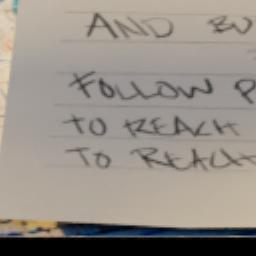 AND BU
FOLLOW P
TO REACH
TO REACH